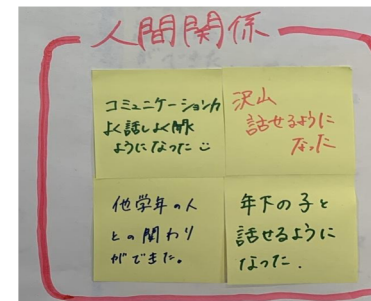 人間関係
コミュニケーション力
よく話しよく聞く
ようになった
沢山
話せるように
なった
他学年の人
との関わり
ができた。
年下の子と
話せるように
なった.